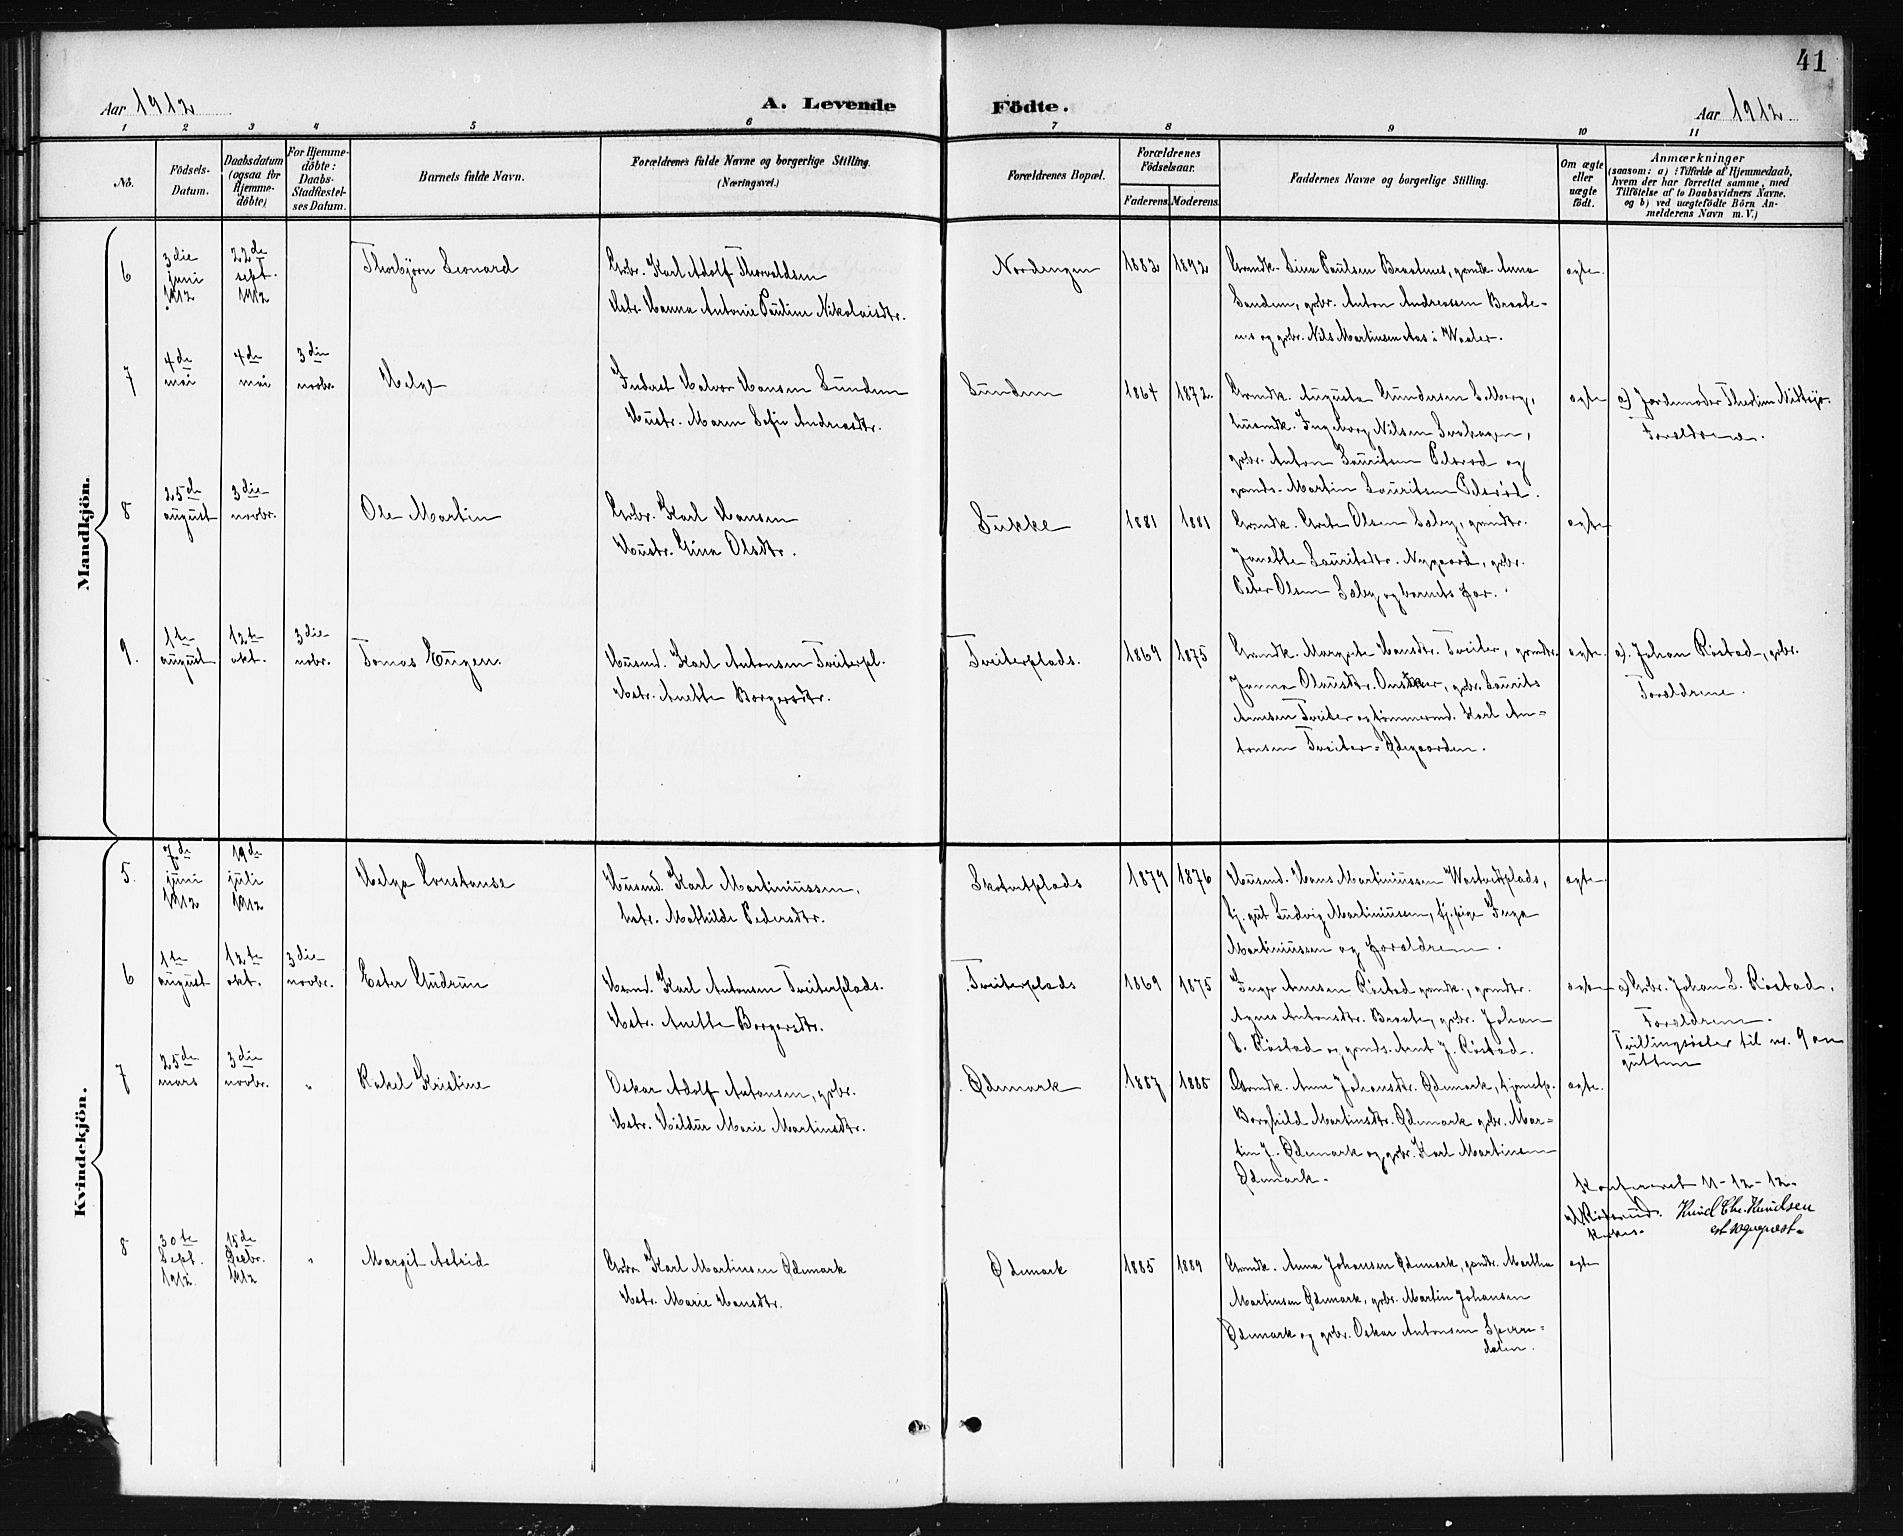 41
Aar 1912
A. Levende Födte.
Aar 1912
1 2 3 4 5 6 7 8 9 10 11
No.
Födsels-
Datum.
Daabsdatum
(ogsaa for
Hjemme-
döbte)
For Hjemme-
döbte:
Daabs-
Stadfæstel-
ses Datum.
Barnets fulde Navn.
Forældrenes fulde Navne og borgerlige Stilling.
(Næringsvei.)
Forældrenes Bopæl.
Forældrenes
Födselsaar.
Faderens. Moderens.
Faddernes Navne og borgerlige Stilling.
Om ægte
eller
uægte
födt.
Anmærkninger
(saasom: a) i Tilfælde af Hjemmedaab,
hvem der har forrettet samme, med
Tilföielse af to Daabsvidners Navne.
og b) ved uægtefödte Börn An-
melderens Navn m. V.)
Mandkjön.
6
3die
juni
1912
22de
sept.
1912
Thorbjörn Leonard
Gbr. Karl Adolf Thorvaldsen
Hstr. Hanna Antonie Pauline Nikolaisdtr.
Nordengen
1882 1892
Grmdk. Lina Paulsen Braatenes, grmdk. Anna
Sanden, grbr. Anton Andreassen Braate-
nes og grbr. Nils Martinsen Aas i Waaler.
ægte.
7
4de
mai
4de
mai
3die
novbr.
Helge
Inderst Halvor Hansen Sunden
Hustr. Maren Sofie Andreasdtr.
Sunden
1864 1872.
Grmdk. Augusta Gundersen Solberg,
husmdk. Ingeborg Nilsen
grbr. Anton Lauritsen Pilsröd og
grmds. Martin Lauritsen Pilsröd.
ægte
a) Jordemoder
Forældrene.
8
25de
august
3die
novbr.
Ole Martin
Grbr. Karl Hansen
Hustr. Gina Olsdtr.
Sukke
1881 1881
Grmdk. Grete Olsen Sæby, grmdtr.
Janette Lauritsdtr. Nygaard, grbr.
Peter Olsen Sæby og barnets far.
ægte
9.
1te
august
12te
okt.
3die
nobr.
Tomas Eugen.
Husmd. Karl Antonsen Tveiterpl.
Hstr. Anette Borgersdtr.
Tveiterplads.
1869 1875
Grmdk. Margrete Hansdtr. Tveiter, grmdtr.
Janna Olausdtr. grbr. Laurits
Arnesen Tveiter og tömmermd. Karl An-
tonsen Tveiter-Ödegaarden.
ægte.
a). Johan Röstad, grbr.
Forældrene.
Kvindekjön.
5.
7de
juni
1912
19de
juli
1912
Helga Konstanse
Husmd. Karl Martiniussen,
hstr. Mathilde Pedersdtr.
Skotvetplads
1879 1876
Husmd. Hans Martiniussen Wastvetplads,
tj. gut Ludvig Martiniussen, tj. pige Inga
Martiniussen og forældrene.
ægte.
6
1te
august
12te
okt.
3die
novbr.
Ester Gudrun
Hsmd. Karl Antonsen Tveiterplads.
Hstr. Anette Borgersdtr.
Tveiterplads
1869 1875
Inger Arnesen Röstad grmdk., grmdtr.
Agnes Antonsdtr. Braate, grbr. Johan
L. Röstad og grmds. Arnt J. Röstad.
ægte
a) Grbr. Johan L. Röstad,
Forældrene.
Tvillingsöster til nr. 9 av
guttene
7
25de
mars
3die
novbr.
"
Rakel Kristine
Oskar Adolf Antonsen, grbr.
Hstr. Hildur Marie Martinsdtr.
Ødemark
1887 1885
Grmdk. Anne Johansdtr. Ødemark, tjenestp.
Borghild Martinsdtr. Ødemark grbr. Mar-
tin J. Ødemark og grbr. Karl Martinsen
Ødemark.
ægte.
Konfereret 11-12-12.
Knud Chr. Knudsen
est. sognepræst
8
30te
Sept.
1912
15de
Desbr.
1912
"
Margit Astrid
Grbr. Karl Martinsen Ødemark
Hstr. Marie Hansdtr.
Ødemark
1885 1889
Grmdk. Anna Johansen Ødemark, grmdtr. Martha
Martinsen Ødemark, grbr. Martin Johansen
Ødemark og grbr. Oskar Antonsen Sperre-
dalen.
ægte